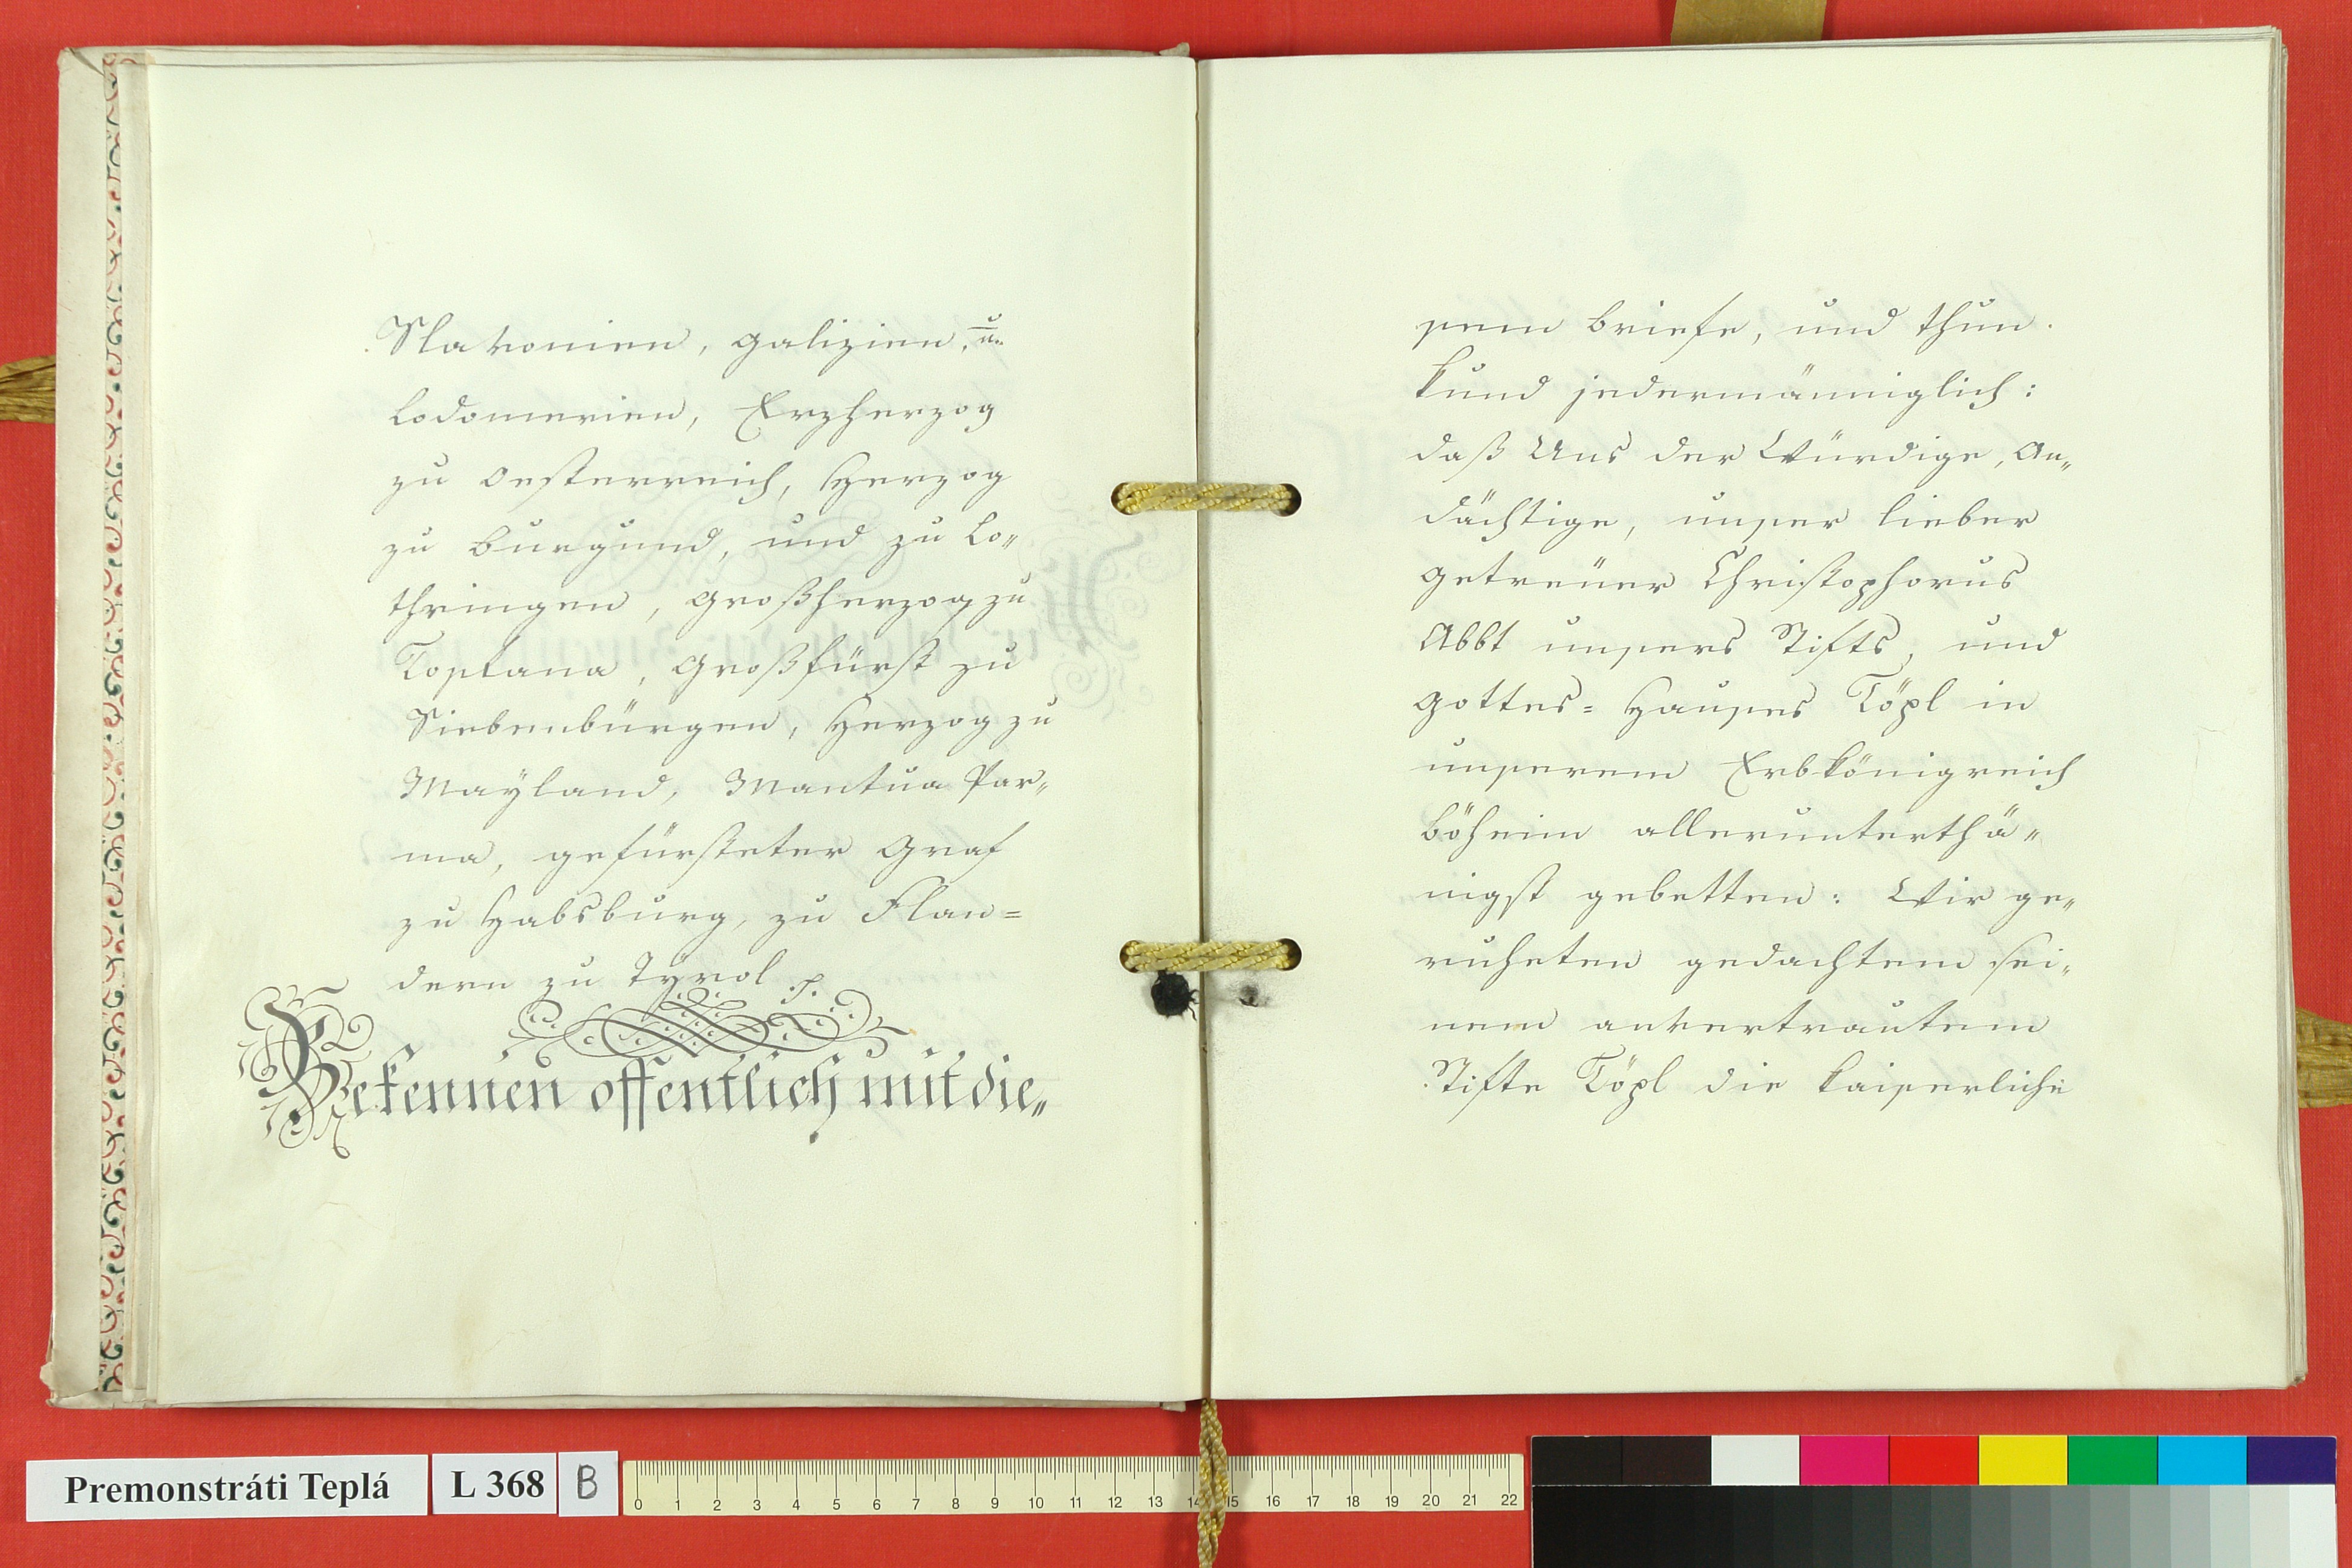 Slavonien, Galizien, u.
Lodomerien, Erzherzog
zu Oesterreich, Herzog
zu Burgund, und zu Lo„
thringen, Großherzog zu
Toskana, Großfürst zu
Siebenbürgen, Herzog zu
Mayland, Mantua Par„
ma, gefürsteter Graf
zu Habsburg, zu Flan=
dern zu Tyrol p.
Bekennen offentlich mit die„
sem Briefe, und thun
kund jedermänniglich:
daß Uns der Würdige, An„
dächtige, unser lieber
getreüer Christophorus
Abbt unsers Stifts, und
Gottes=Hauses Töpl in
unserem Erbkönigreich
Böheim allerunterthä„
nigst gebetten: Wir ge„
ruheten gedachtem sei„
nem anvertrautem
Stifte Töpl die kaiserliche
Premonstráti Teplá
L 368
B
0 1 2 3 4 5 6 7 8 9 10 11 12 13 14 15 16 17 18 19 20 21 22